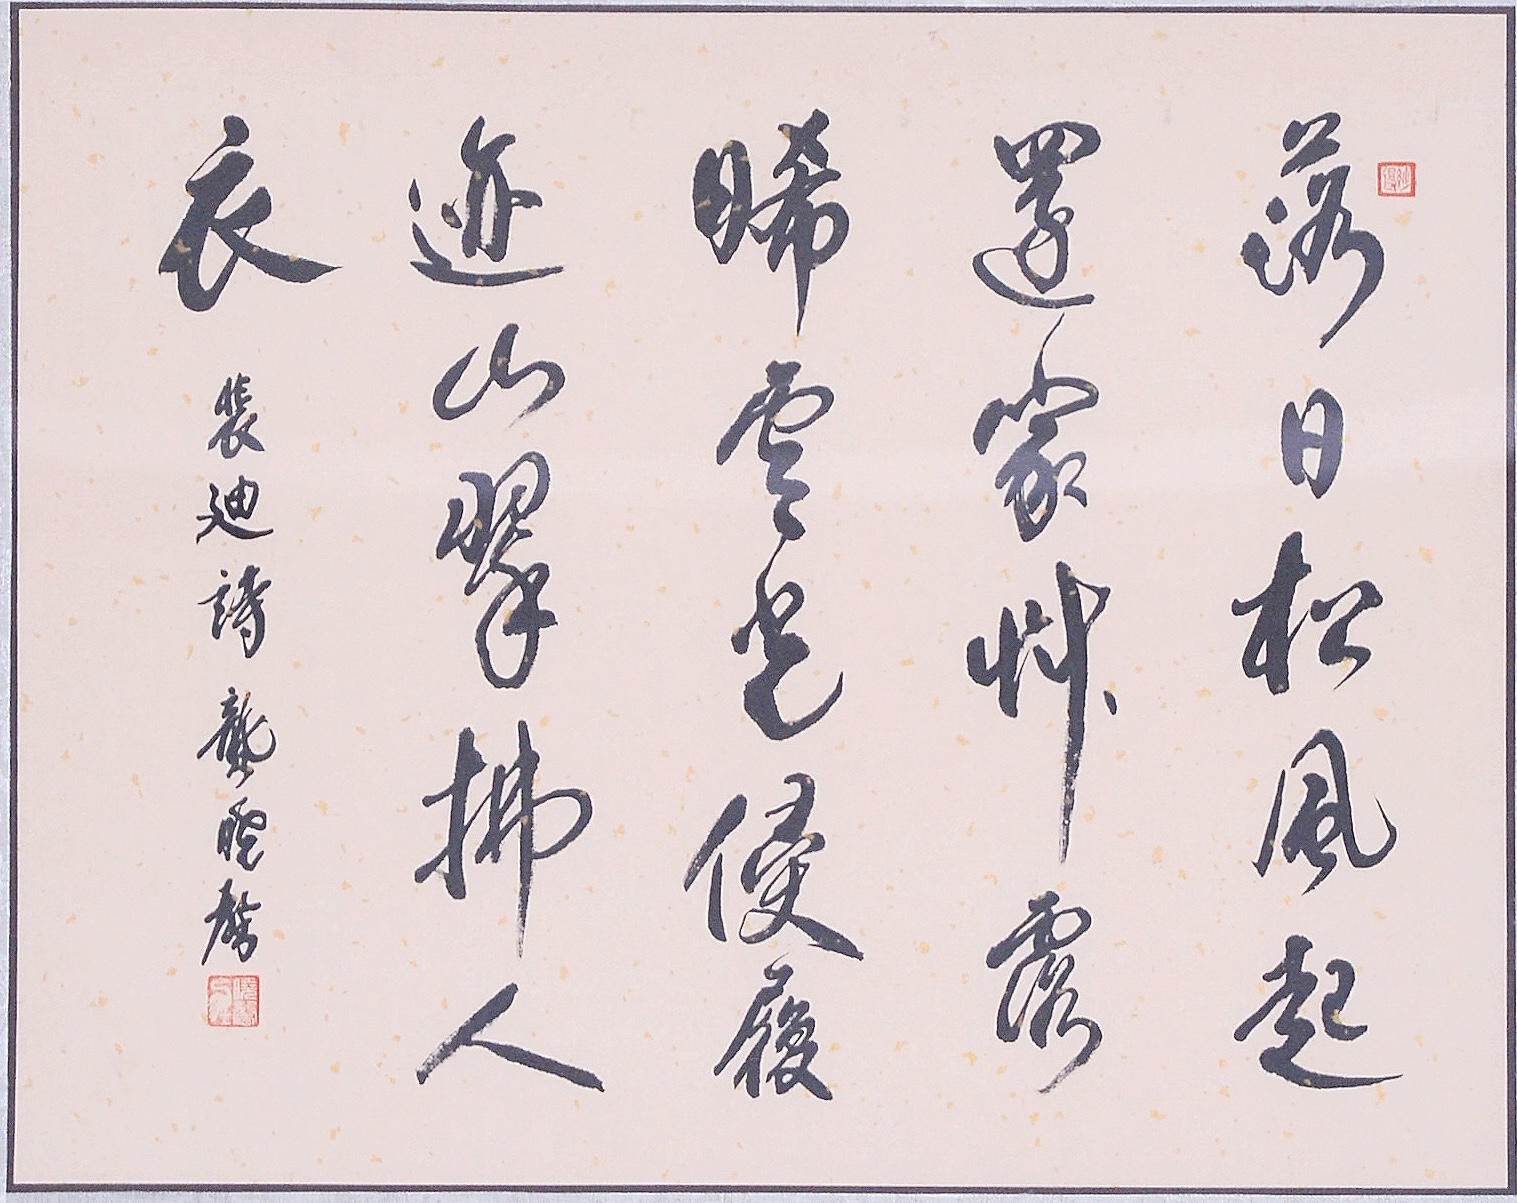 落日松風起
還家艸露
晞雲光侵履
迹山翠拂人
衣
裴迪詩 龔